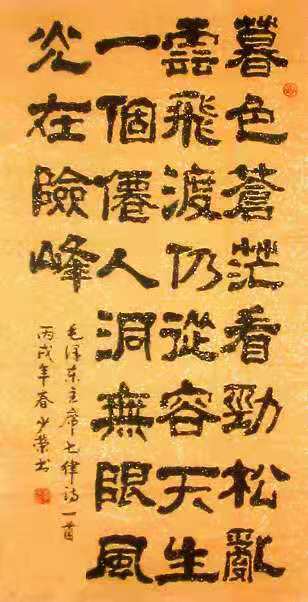 暮色蒼茫看勁松亂
雲飛渡仍從容天生
一個僊人洞無限風
光在險峰
毛泽东主席七律诗一首
丙戌年春少榮书